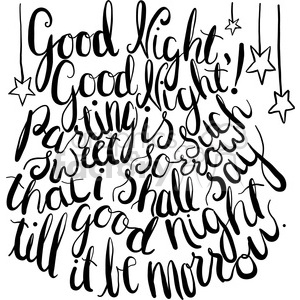 Good Night,
Good Night!
Parting is such
sweet sorrow
that i shall say
good night
till it be morrow.